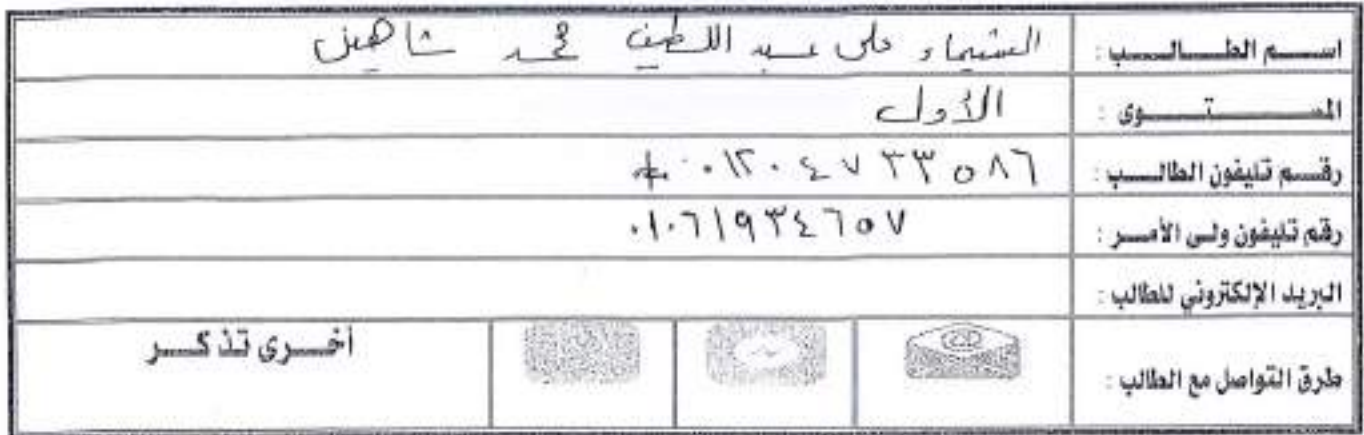 اسم الطالب : الشيماء على عبد اللطيف محمد شاهين
المستوى : الأول
رقم تليفون الطالب : ٠١٢٠٤٧٣٣٥٨٦
رقم تليفون ولى الأمر : ٠١٠٦١٩٣٤٦٥٧
البريد الإلكتروني للطالب :
طرق التواصل مع الطالب : أخرى تذكر